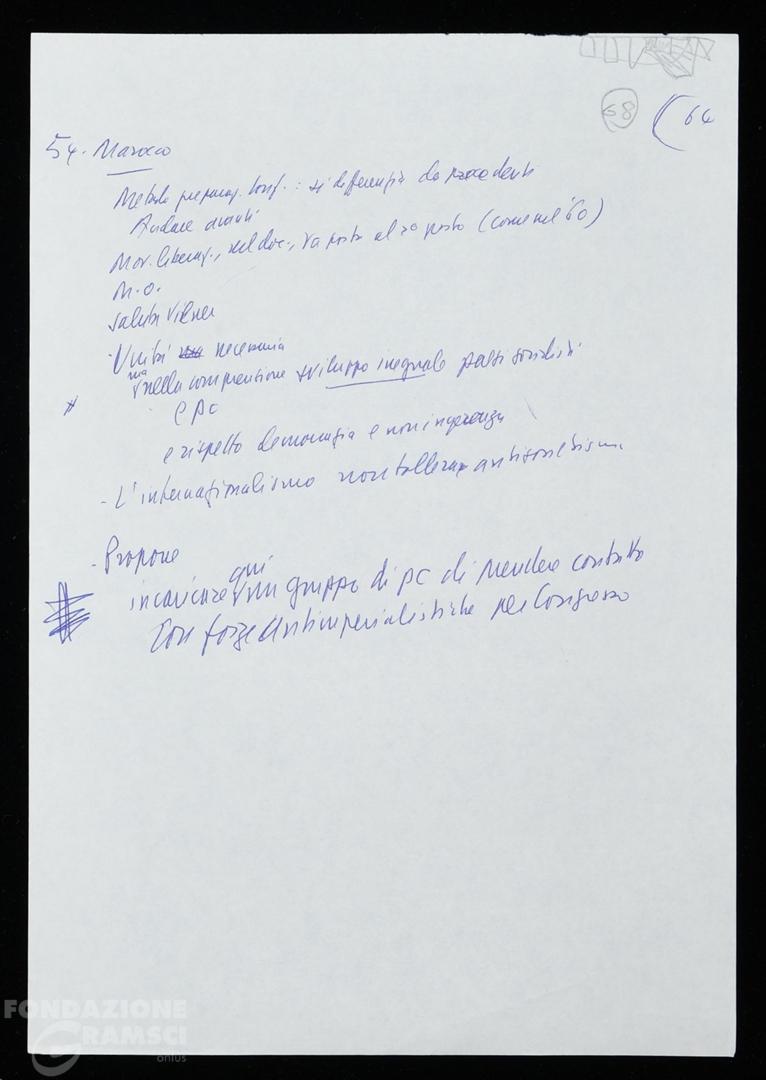 68 (64
54. Marocco
Metodo preparaz. Conf.: si differenzia da precedenti
Andare avanti
Mov. liberaz., nel doc., va posto al 2º posto (come nel '60)
M.O.
Saluta Vilner
- Unità necessaria
ma nella comprensione sviluppo ineguale paesi socialisti
e PC
e rispetto democrazia e non ingerenza
- L'internazionalismo non tollera antisovietismo
- Propone
incaricare qui un gruppo di PC di prendere contatto
con forze antimperialistiche per Congresso
FONDAZIONE
GRAMSCI
onlus